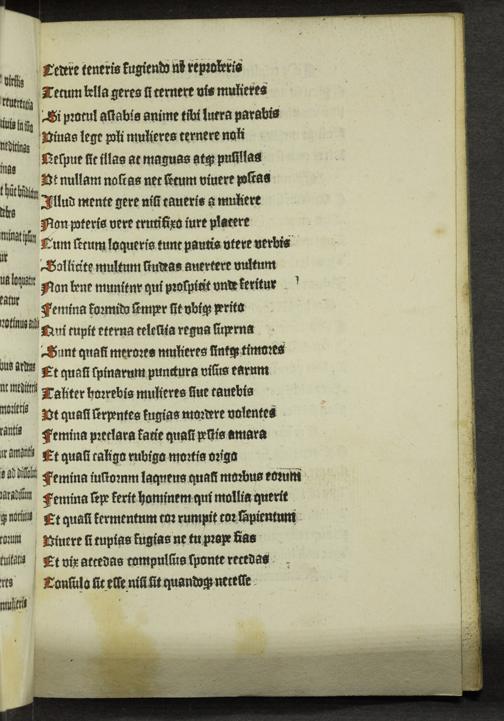 virilis
reuerencia
medicinas
dibꝰ
ur
ua loquatur
eatur
protinus
bus
moriens
rantis
ur amantis
is ad
paradisum
eorum
res
mulieris
Cedere teneris fugiendo ne reproberis
Tecum bella geres si cernere vis mulieres
Si procul astabis anime tibi lucra parabis
Viuas lege poli mulieres cernere noli
Respue sic illas ac magnas atqꝫ pusillas
Vt nullam noscas nec secum viuere poscas
Illud mente gere nisi caueris a muliere
Non poteris vere crucifixo iure placere
Cum secum loqueris tunc paucis vtere verbis
Sollicite multum studeas auertere vultum
Non bene munitur qui prospicit vnde feritur
Femina formido semper sit vbiqꝫ perito
Qui cupit eterna celestia regna superna
Sunt quasi merores mulieres suntqꝫ timores
Et quasi spinarum punctura visus earum
Taliter horrebis mulieres siue cauebis
Vt quasi serpentes fugias mordere volentes
Femina preclara facie quasi pestis amara
Et quasi caligo rubigo mortis origo
Femina iustorum laqueus quasi morbus eorum
Femina sepe ferit hominem qui mollia querit
Et quasi fermentum cor rumpit cor sapientum
Viuere si cupias fugias ne tu prope fias
Et vix accedas compulsus sponte recedas
Consulo sic esse nisi sit quandoqꝫ necesse